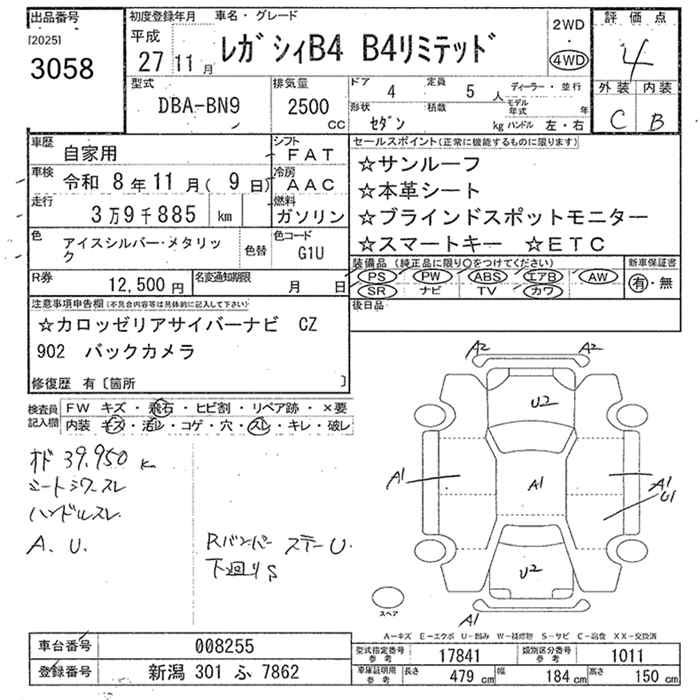 出品番号
[2025]
3058
初度登録年月 車名・グレード
平成
27 11月
レガシィB4 B4リミテッド
2WD
・
4WD
評価点
4
外装 内装
C B
型式 排気量 ドア 定員 ディーラー・並行
DBA-BN9 2500 CC 4 5人
形状 積数 モデル年式 年
セダン kg ハンドル 左・右
車歴 自家用 シフト FAT
車検 令和 8年 11月( 9日) 冷房 AAC
走行 3万9千885 km 燃料 ガソリン
色 アイスシルバー・メタリック 色替 色コード G1U
R券 12,500円 名変通知期限 月 日
セールスポイント(正常に機能するものに限ります)
☆サンルーフ
☆本革シート
☆ブラインドスポットモニター
☆スマートキー ☆ETC
装備品 (純正品に限り〇をつけてください) 新車保証書
PS PW ABS エアB AW 有・無
SR ナビ TV カワ
後日品
注意事項申告欄(不具合内容等は具体的に記入して下さい)
☆カロッゼリアサイバーナビ CZ
902 バックカメラ
修復歴 有〔箇所 〕
検査員記入欄 FW キズ・飛石・ヒビ割・リペア跡・×要
内装 キズ・汚レ・コゲ・穴・スレ・キレ・破レ
オド 39,950 K
シートシワスレ
ハンドルスレ
A. U.
Rバンパー ステーU.
下廻りS
A2 A2
U2
A1 A1 A1
U1
U2
A1
スペア
A-キズ E-エクボ U-凹み W-補修跡 S-サビ C-腐食 XX-交換済
車台番号 008255
登録番号 新潟 301 ふ 7862
型式指定番号 参考 17841 類別区分番号 参考 1011
車庫証明用 参考 長さ 479 cm 幅 184 cm 高さ 150 cm